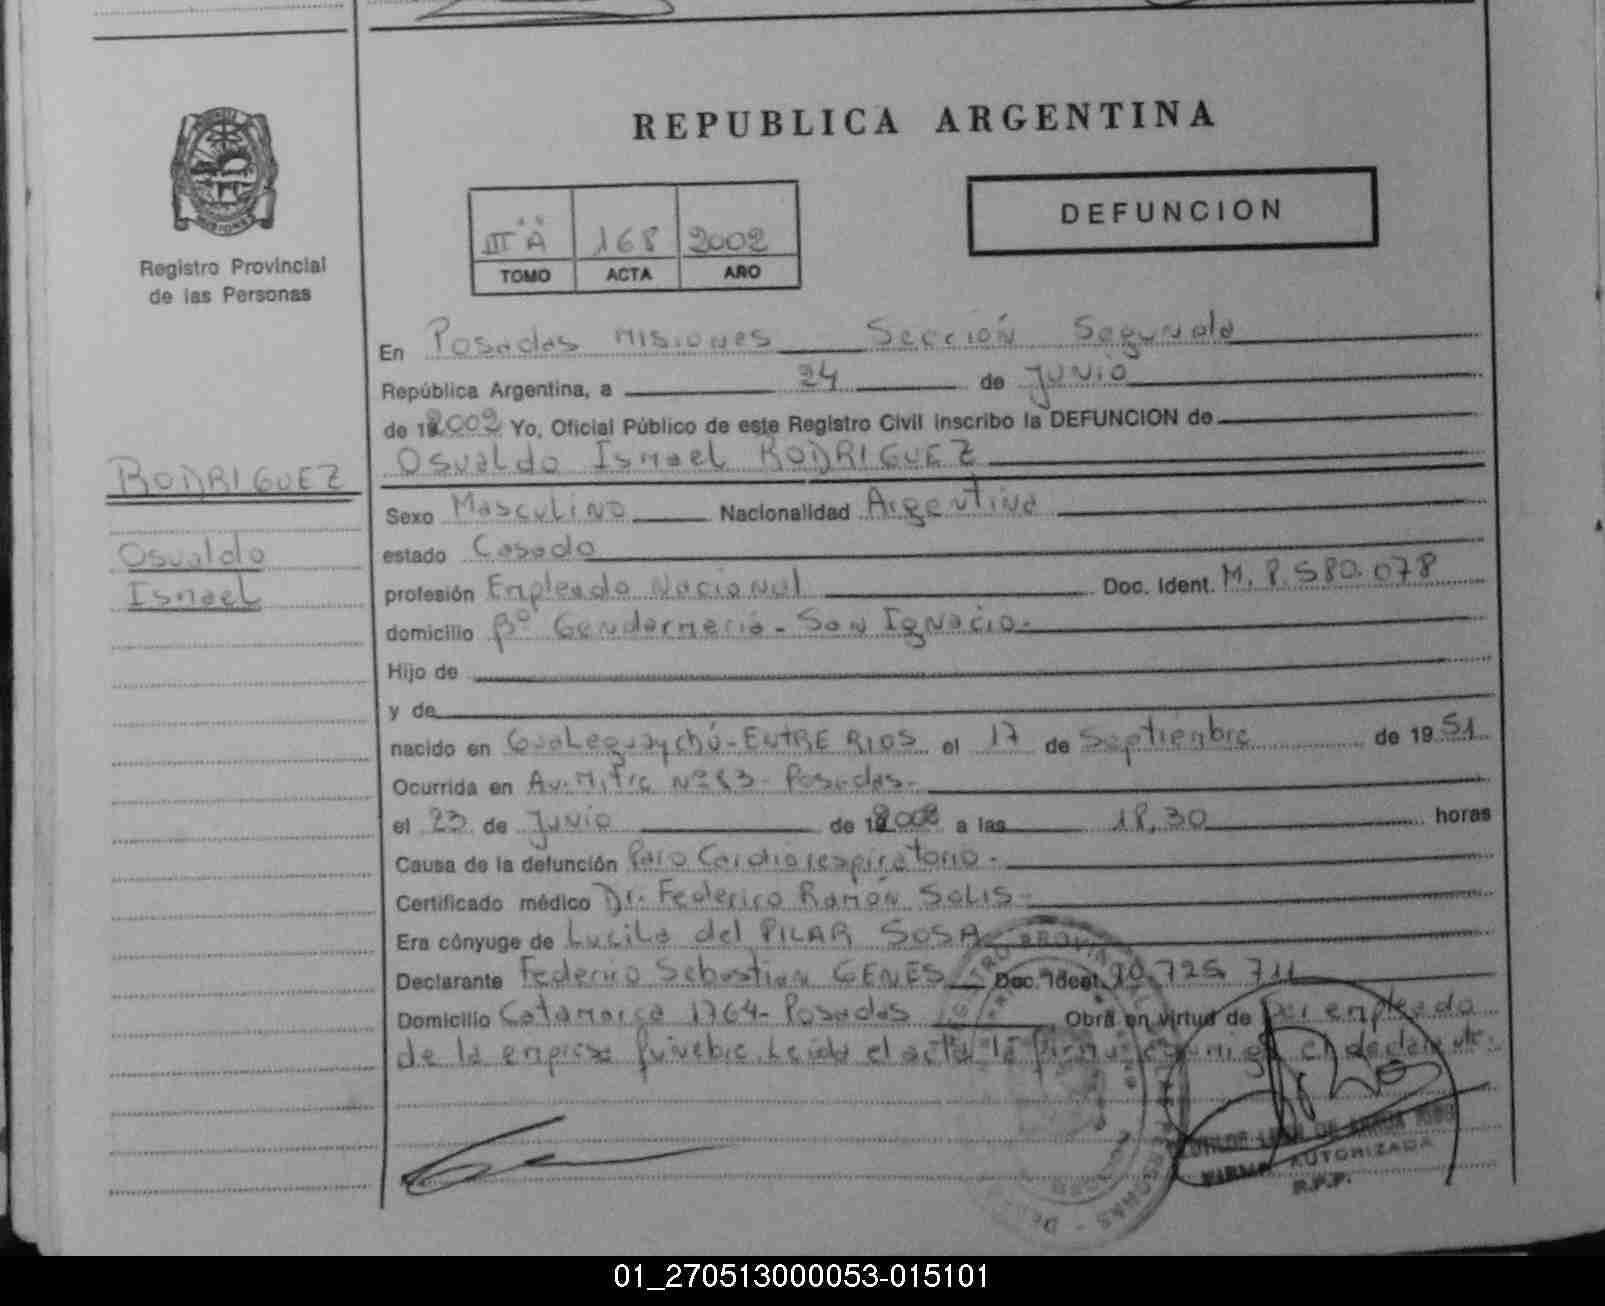 REPUBLICA ARGENTINA
DEFUNCION
III "A" 168 2002
TOMO ACTA AÑO
Registro Provincial
de las Personas
En Posadas Misiones Sección Segunda
República Argentina, a 24 de Junio
de 2002 Yo, Oficial Público de este Registro Civil inscribo la DEFUNCION de
Osvaldo Ismael RODRIGUEZ
RODRIGUEZ
Osvaldo
Ismael
Sexo Masculino Nacionalidad Argentina
estado Casado
profesión Empleado Nacional Doc. Ident. M. 8.580.078
domicilio Bº Gendarmería - San Ignacio.
Hijo de
y de
nacido en Gualeguaychú - ENTRE RIOS el 17 de Septiembre de 1951
Ocurrida en Av. Mitre Nº 83 - Posadas.
el 23 de Junio de 2002 a las 18,30 horas
Causa de la defunción Paro Cardiorespiratorio.
Certificado médico Dr. Federico Ramón SOLIS
Era cónyuge de Lucila del PILAR SOSA
Declarante Federico Sebastian GENES Doc. Ident. 20.725.711
Domicilio Catamarca 1764 - Posadas Obra en virtud de ser empleado
de la empresa fúnebre. Leída el acta la firma conmigo el declarante.
FIRMA AUTORIZADA
R.P.P.
01_270513000053-015101